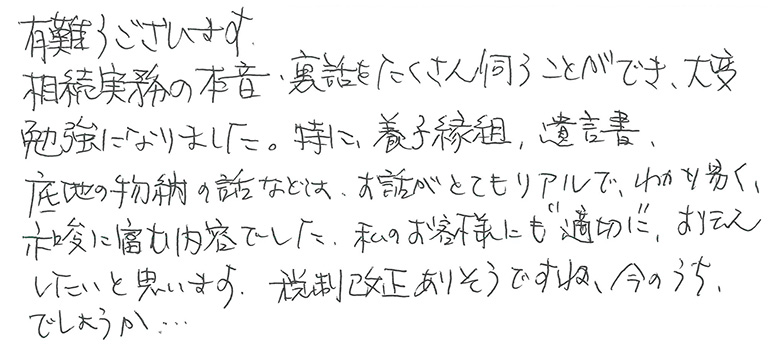 有難うございます.
相続実務の本音・裏話をたくさん伺うことができ、大変
勉強になりました。特に、養子縁組、遺言書、
底地の物納の話などは、お話がとてもリアルで、わかり易く、
示唆に富む内容でした. 私のお客様にも"適切に"、お伝え
したいと思います. 税制改正ありそうですね、今のうち、
でしょうか…